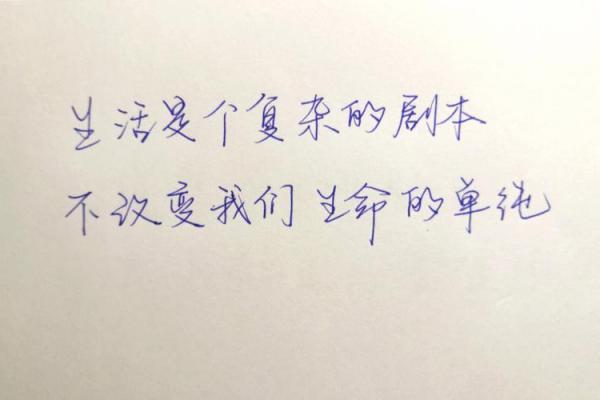 生活是个复杂的剧本
不改变我们生命的单纯